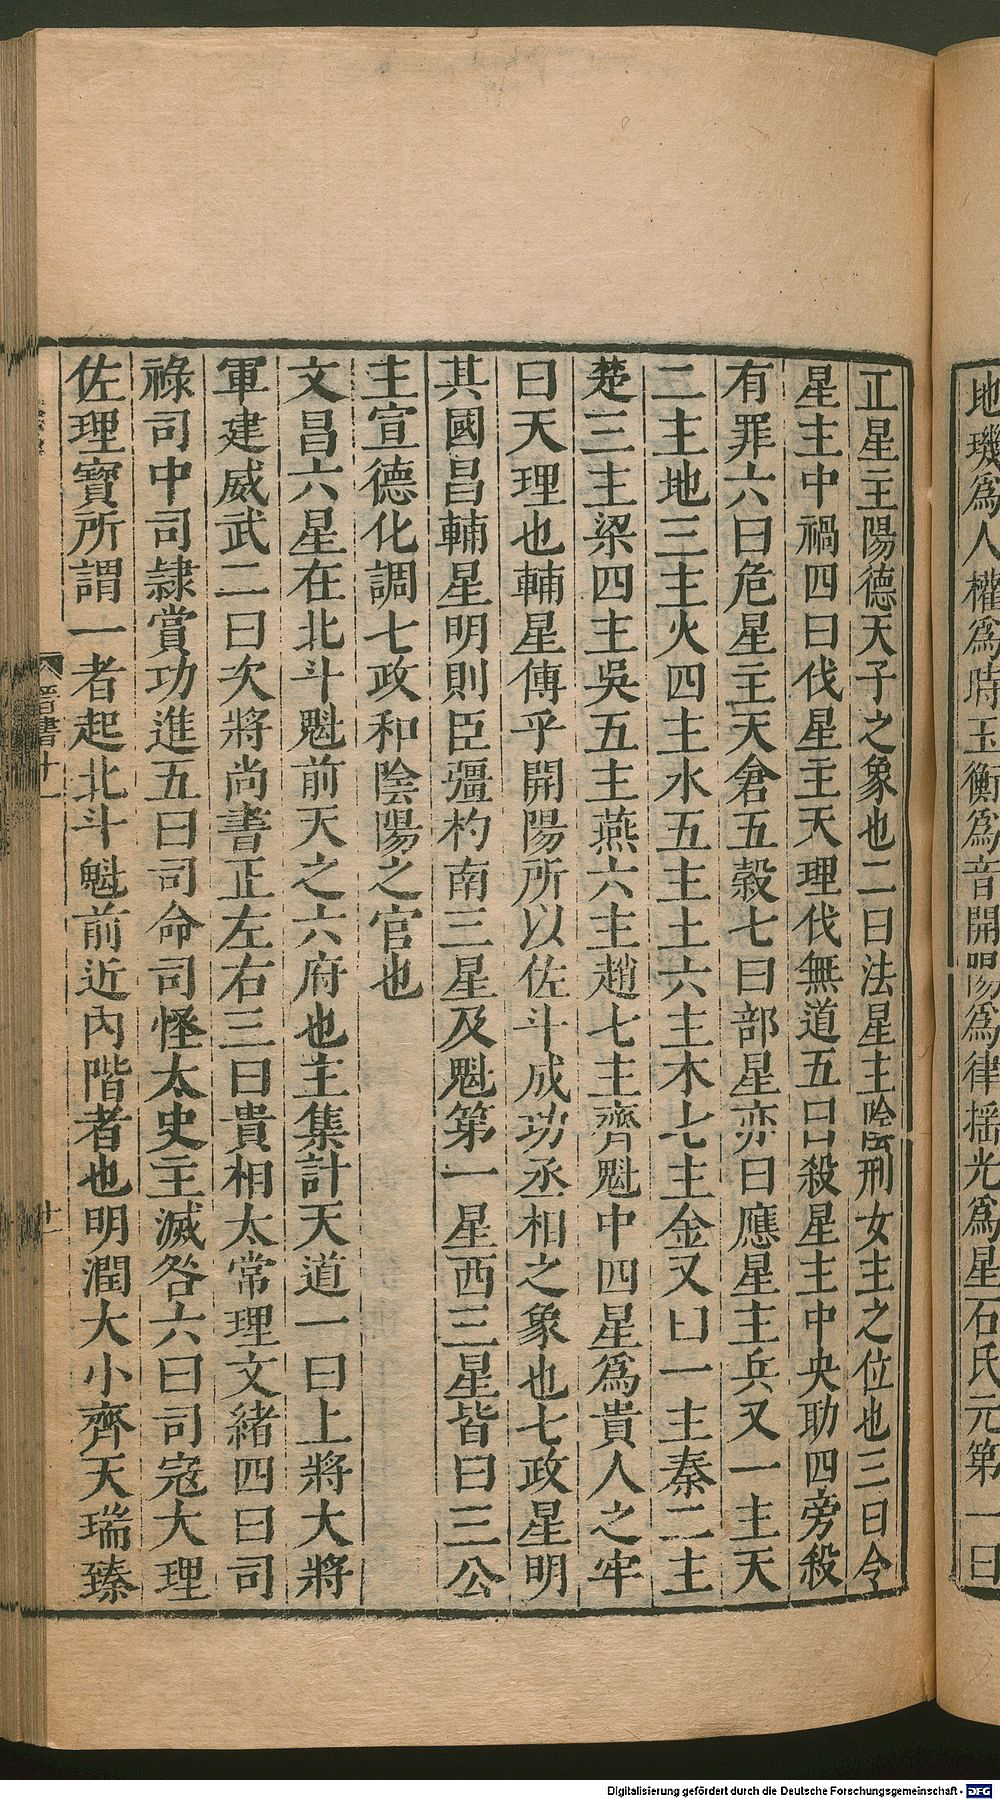 地璣爲人權爲時玉衡爲音開陽爲律揺光爲星石氏元第一曰
正星主陽德天子之象也二曰法星主陰刑女主之位也三曰令
星主中禍四曰伐星主天理伐無道五曰殺星主中央助四旁殺
有罪六曰危星主天倉五穀七曰部星亦曰應星主兵又一主天
二主地三主火四主水五主土六主木七主金又曰一主秦二主
楚三主梁四主吳五主燕六主趙七主齊魁中四星爲貴人之牢
曰天理也輔星傳乎開陽所以佐斗成功丞相之象也七政星明
其國昌輔星明則臣彊杓南三星及魁第一星西三星皆曰三公
主宣德化調七政和陰陽之官也
文昌六星在北斗魁前天之六府也主集計天道一曰上將大將
軍建威武二曰次將尚書正左右三曰貴相太常理文緒四曰司
祿司中司隷賞功進五曰司命司怪太史主滅咎六曰司寇大理
佐理寶所謂一者起北斗魁前近內階者也明潤大小齊天瑞臻
晉書十一
十一
Digitalisierung gefördert durch die Deutsche Forschungsgemeinschaft - DFG